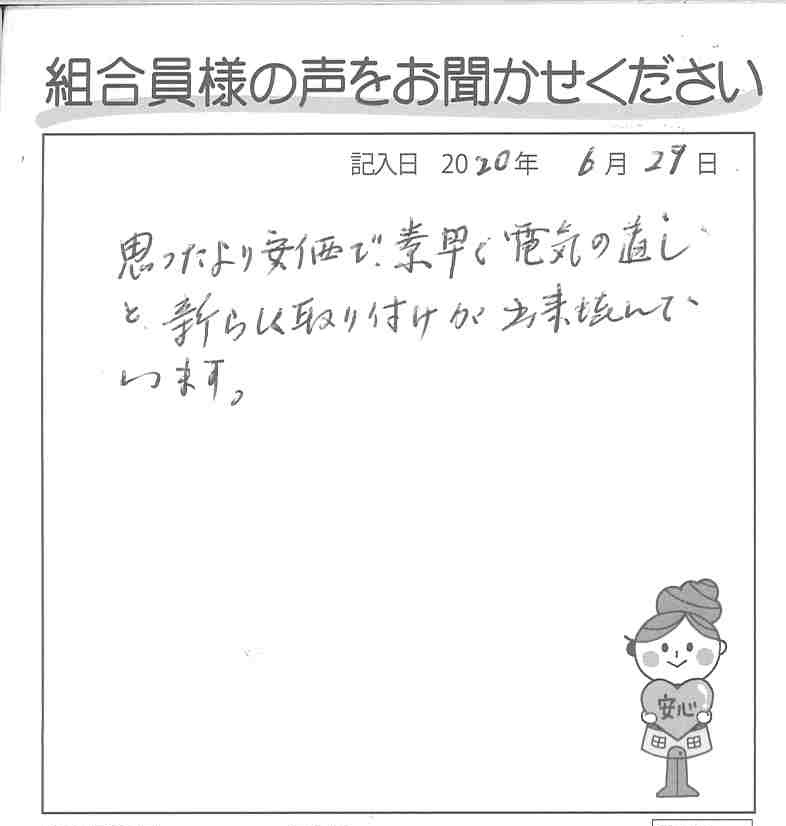 組合員様の声をお聞かせください
記入日 2020年 6月29日
思ったより安価で、素早く電気の直し
と、新らしく取り付けが出来喜んで
います。
安心